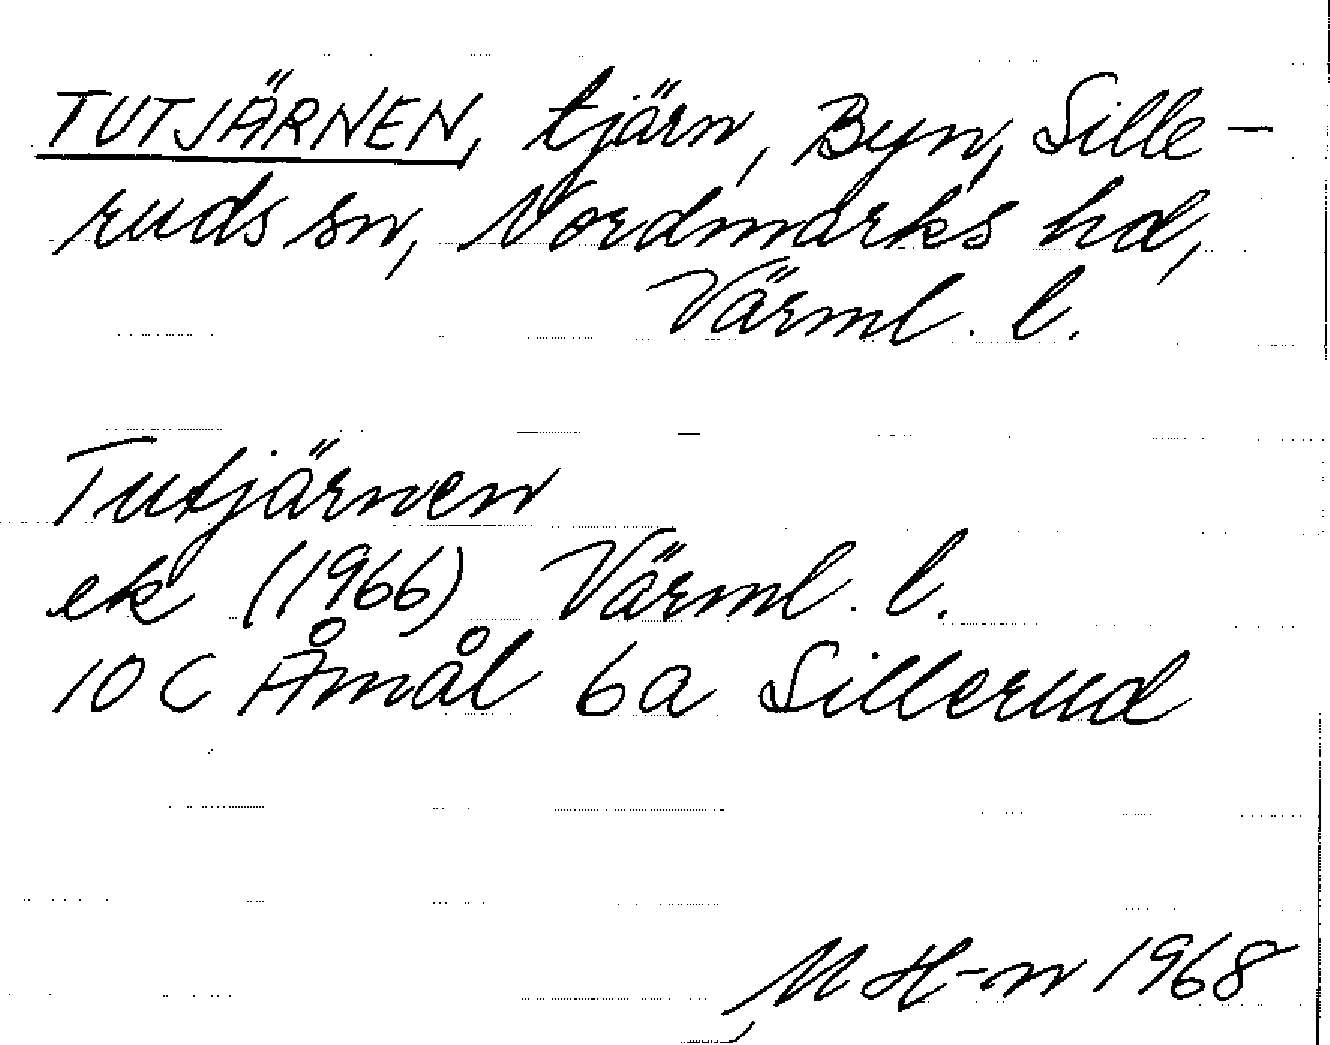 TUTJÄRNEN, tjärn, Byn, Sille-
ruds sn, Nordmarks hd,
Värml. l.
Tutjärnen
ek (1966) Värml. l.
10 C Åmål 6a Sillerud
M H-n 1968